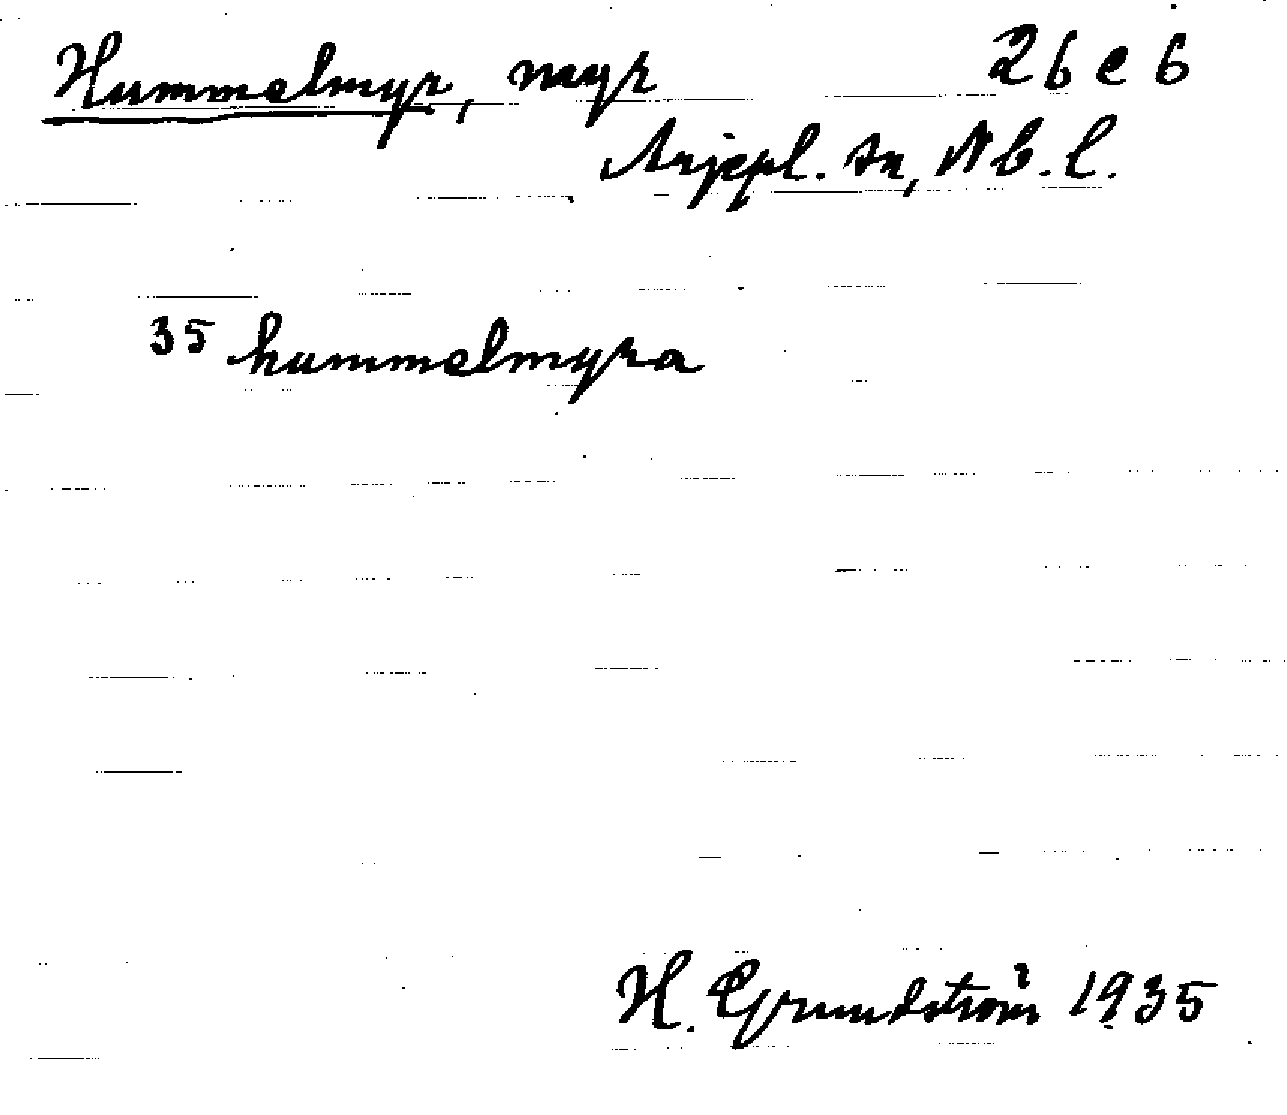 Hummelmyr, myr 26 e 6
Arjepl. sn, Nb. l.
35 hummelmyra
H. Grundström 1935